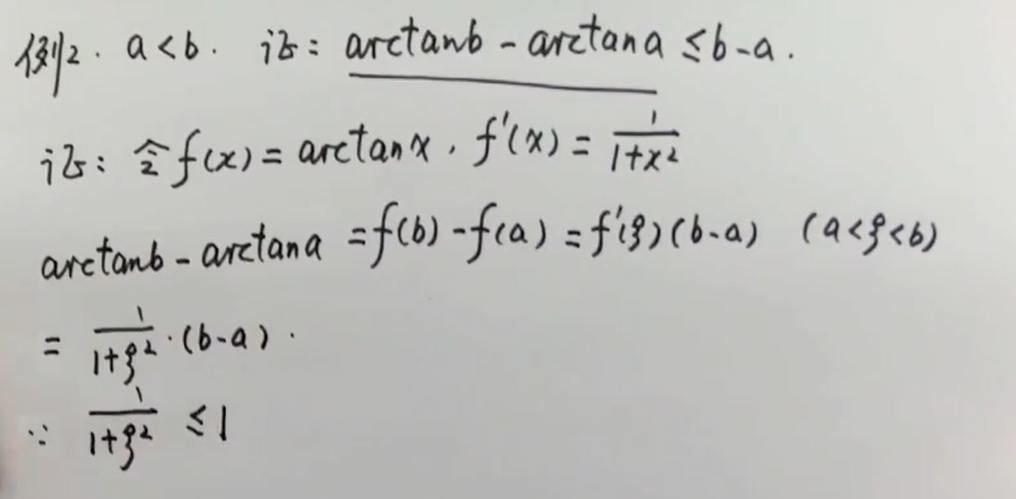 例2. a<b. 证: arctanb - arctana ≤ b-a.
证: 令f(x) = arctanx. f'(x) = 1/(1+x²)
arctanb - arctana = f(b) - f(a) = f'(ξ)(b-a) (a<ξ<b)
= 1/(1+ξ²)·(b-a).
∵ 1/(1+ξ²) ≤ 1